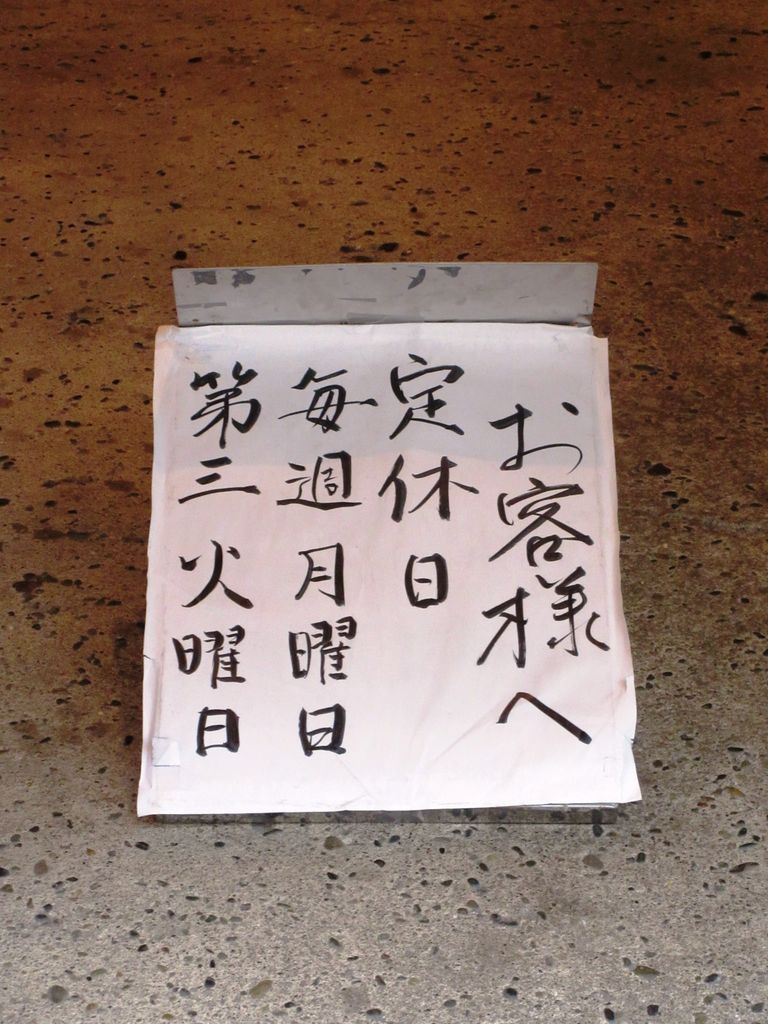 お客様へ
定休日
毎週月曜日
第三火曜日